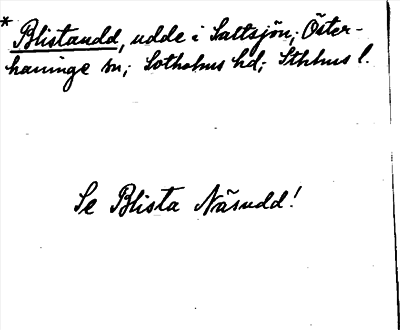 * Blistaudd, udde i Saltsjön, Öster-
haninge sn; Sotholms hd; Sthlms l.
Se Blista Näsudd!